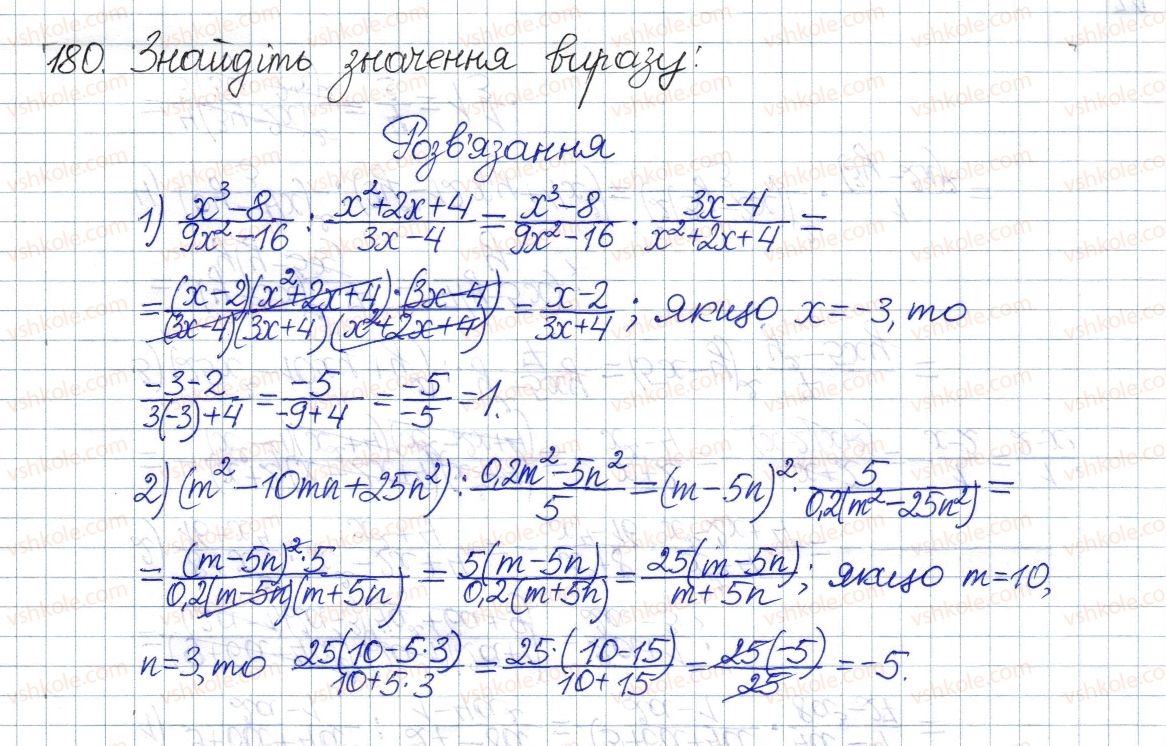 180. Знайдіть значення виразу:
Розв'язання
1) \frac{x^3-8}{9x^2-16} : \frac{x^2+2x+4}{3x-4} = \frac{x^3-8}{9x^2-16} · \frac{3x-4}{x^2+2x+4} =
= \frac{(x-2)(x^2+2x+4)·(3x-4)}{(3x-4)(3x+4)(x^2+2x+4)} = \frac{x-2}{3x+4}; якщо x=-3, то
\frac{-3-2}{3(-3)+4} = \frac{-5}{-9+4} = \frac{-5}{-5} = 1.
2) (m^2-10mn+25n^2) : \frac{0,2m^2-5n^2}{5} = (m-5n)^2 · \frac{5}{0,2(m^2-25n^2)} =
= \frac{(m-5n)^2·5}{0,2(m-5n)(m+5n)} = \frac{5(m-5n)}{0,2(m+5n)} = \frac{25(m-5n)}{m+5n}; якщо m=10,
n=3, то \frac{25(10-5·3)}{10+5·3} = \frac{25·(10-15)}{10+15} = \frac{25(-5)}{25} = -5.
vshkole.com